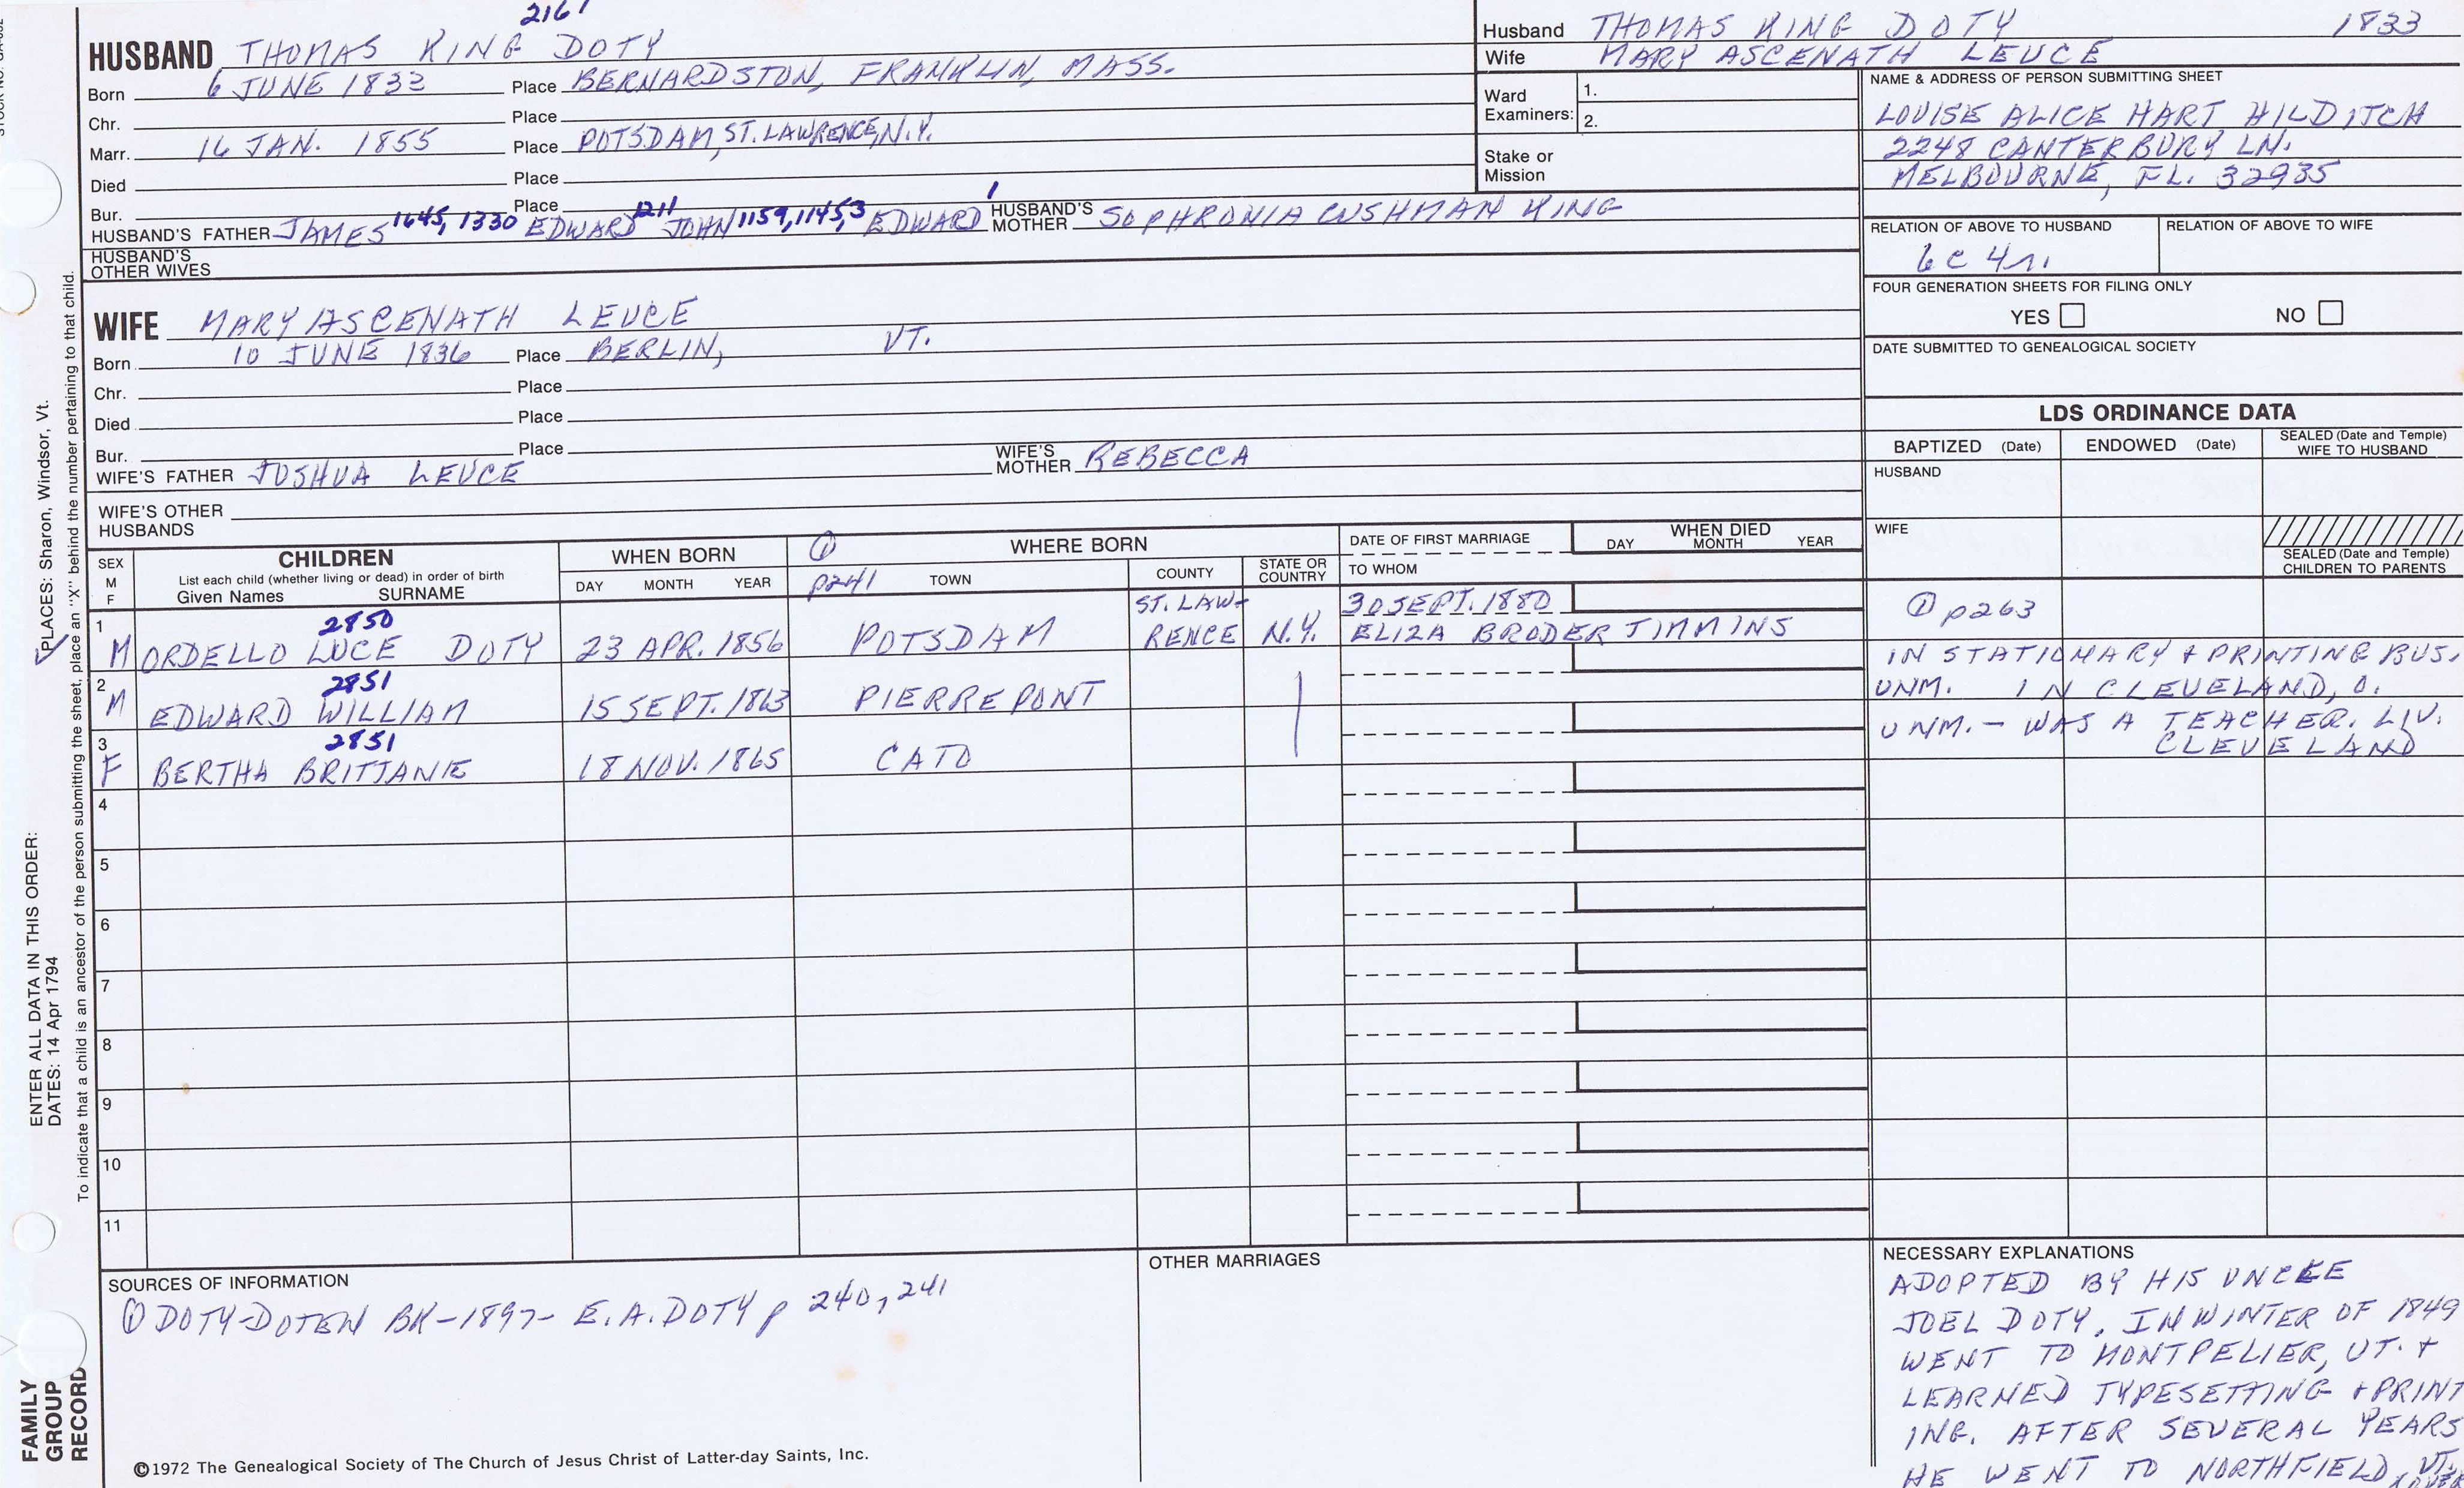 2161
HUSBAND THOMAS KING DOTY
Born 6 JUNE 1833 Place BERNARDSTON, FRANKLIN, MASS.
Chr. Place
Marr. 16 JAN. 1855 Place POTSDAM, ST. LAWRENCE, N.Y.
Died Place
Bur. Place
HUSBAND'S FATHER JAMES 1645, 1330 EDWARD 1211 JOHN 1159, 1145, 3 EDWARD 1 HUSBAND'S MOTHER SOPHRONIA CUSHMAN KING
HUSBAND'S OTHER WIVES
Husband THOMAS KING DOTY 1833
Wife MARY ASCENATH LEUCE
Ward Examiners: 1.
2.
Stake or Mission
NAME & ADDRESS OF PERSON SUBMITTING SHEET
LOUISE ALICE HART HILDITCH
2248 CANTERBURY LN.
MELBOURNE, FL. 32935
RELATION OF ABOVE TO HUSBAND RELATION OF ABOVE TO WIFE
6c 4r.
FOUR GENERATION SHEETS FOR FILING ONLY
YES NO
DATE SUBMITTED TO GENEALOGICAL SOCIETY
WIFE MARY ASCENATH LEUCE
Born 10 JUNE 1836 Place BERLIN, VT.
Chr. Place
Died Place
Bur. Place
WIFE'S FATHER JOSHUA LEUCE WIFE'S MOTHER REBECCA
WIFE'S OTHER HUSBANDS
LDS ORDINANCE DATA
BAPTIZED (Date) ENDOWED (Date) SEALED (Date and Temple) WIFE TO HUSBAND
HUSBAND
WIFE
SEALED (Date and Temple) CHILDREN TO PARENTS
SEX M F CHILDREN List each child (whether living or dead) in order of birth Given Names SURNAME
WHEN BORN DAY MONTH YEAR
① p241 WHERE BORN TOWN COUNTY STATE OR COUNTRY
DATE OF FIRST MARRIAGE TO WHOM
WHEN DIED DAY MONTH YEAR
1 M 2850 ORDELLO LUCE DOTY 23 APR. 1856 POTSDAM ST. LAW-RENCE N.Y. 30 SEPT. 1880 ELIZA BRODER TIMMINS ① p263
2 M 2851 EDWARD WILLIAM 15 SEPT. 1863 PIERREPONT IN STATIONARY + PRINTING BUS. UNM. IN CLEVELAND, O.
3 F 2851 BERTHA BRITTANIE 18 NOV. 1865 CATO UNM. - WAS A TEACHER. LIV. CLEVELAND
4
5
6
7
8
9
10
11
SOURCES OF INFORMATION
① DOTY-DOTEN BK-1897- E.A. DOTY p 240, 241
OTHER MARRIAGES
NECESSARY EXPLANATIONS
ADOPTED BY HIS UNCLE
JOEL DOTY. IN WINTER OF 1849
WENT TO MONTPELIER, VT. +
LEARNED TYPESETTING + PRINT
ING. AFTER SEVERAL YEARS
HE WENT TO NORTHFIELD, VT.
©1972 The Genealogical Society of The Church of Jesus Christ of Latter-day Saints, Inc.
FAMILY GROUP RECORD
ENTER ALL DATA IN THIS ORDER:
DATES: 14 Apr 1794
PLACES: Sharon, Windsor, Vt.
To indicate that a child is an ancestor of the person submitting the sheet, place an "X" behind the number pertaining to that child.